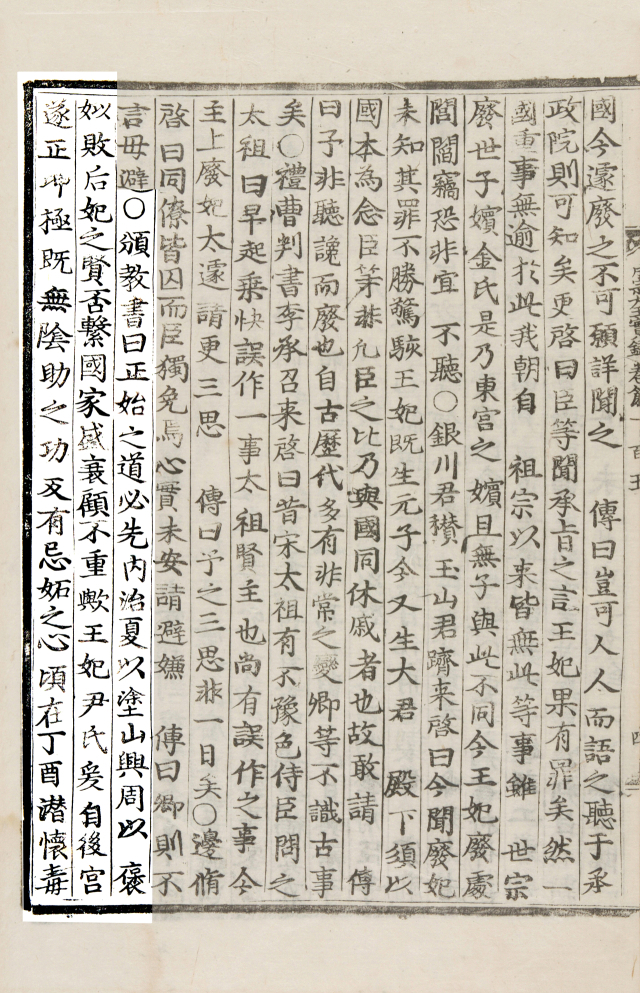 國今遽廢之不可願詳聞之 傳曰豈可人人而語之聽于承
政院則可知矣更啓曰臣等聞承旨之言王妃果有罪矣然一
國重事無逾於此我朝自 祖宗以来皆無此等事雖 世宗
廢世子嬪金氏是乃東宮之嬪且無子與此不同今王妃廢處
閭閻竊恐非宜 不聽○銀川君欑玉山君躋来啓曰今聞廢妃
未知其罪不勝驚駭王妃既生元子今又生大君 殿下須以
國本為念臣等非凡臣之比乃與國同休戚者也故敢請 傳
曰予非聽讒而廢也自古歷代多有非常之變卿等不識古事
矣○禮曹判書李承召来啓曰昔宋太祖有不豫色侍臣問之
太祖曰早起乗快誤作一事太祖賢主也尚有誤作之事今
主上廢妃太遽請更三思 傳曰予之三思非一日矣○邊脩
啓曰同僚皆囚而臣獨免焉心實未安請避嫌 傳曰卿則不
言毋避○頒教書曰正始之道必先內治夏以塗山興周以褒
姒敗后妃之賢否繫國家盛衰顧不重歟王妃尹氏爰自後宮
遂正坤極既無陰助之功反有忌妬之心頃在丁酉潜懷毒